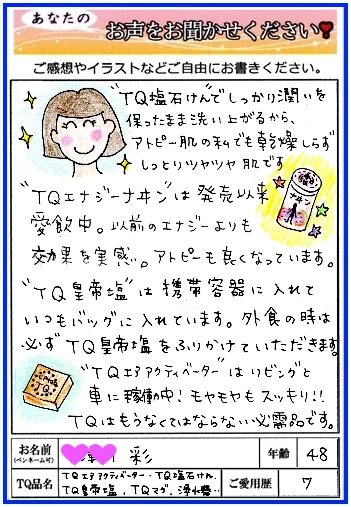 あなたの
お声をお聞かせください
ご感想やイラストなどご自由にお書きください。
"TQ塩石けん"でしっかり潤いを
保ったまま洗い上がるから、
アトピー肌の私でも乾燥しらず
しっとりツヤツヤ肌です
"TQエナジーナヰン"は発売以来
愛飲中。以前のエナジーよりも
効果を実感。アトピーも良くなっています。
"TQ皇帝塩"は携帯容器に入れて
いつもバッグに入れています。外食の時は
必ずTQ皇帝塩をふりかけていただきます。
"TQエアアクティベーター"はリビングと
車に稼働中!モヤモヤもスッキリ!!
TQはもうなくてはならない必需品です。
TQ
お名前
(ペンネーム可)
彩
年齢
48
TQ品名
TQエアアクティベーター・TQ塩石けん、
TQ皇帝塩、TQマグ、浄水器…
ご愛用歴
7